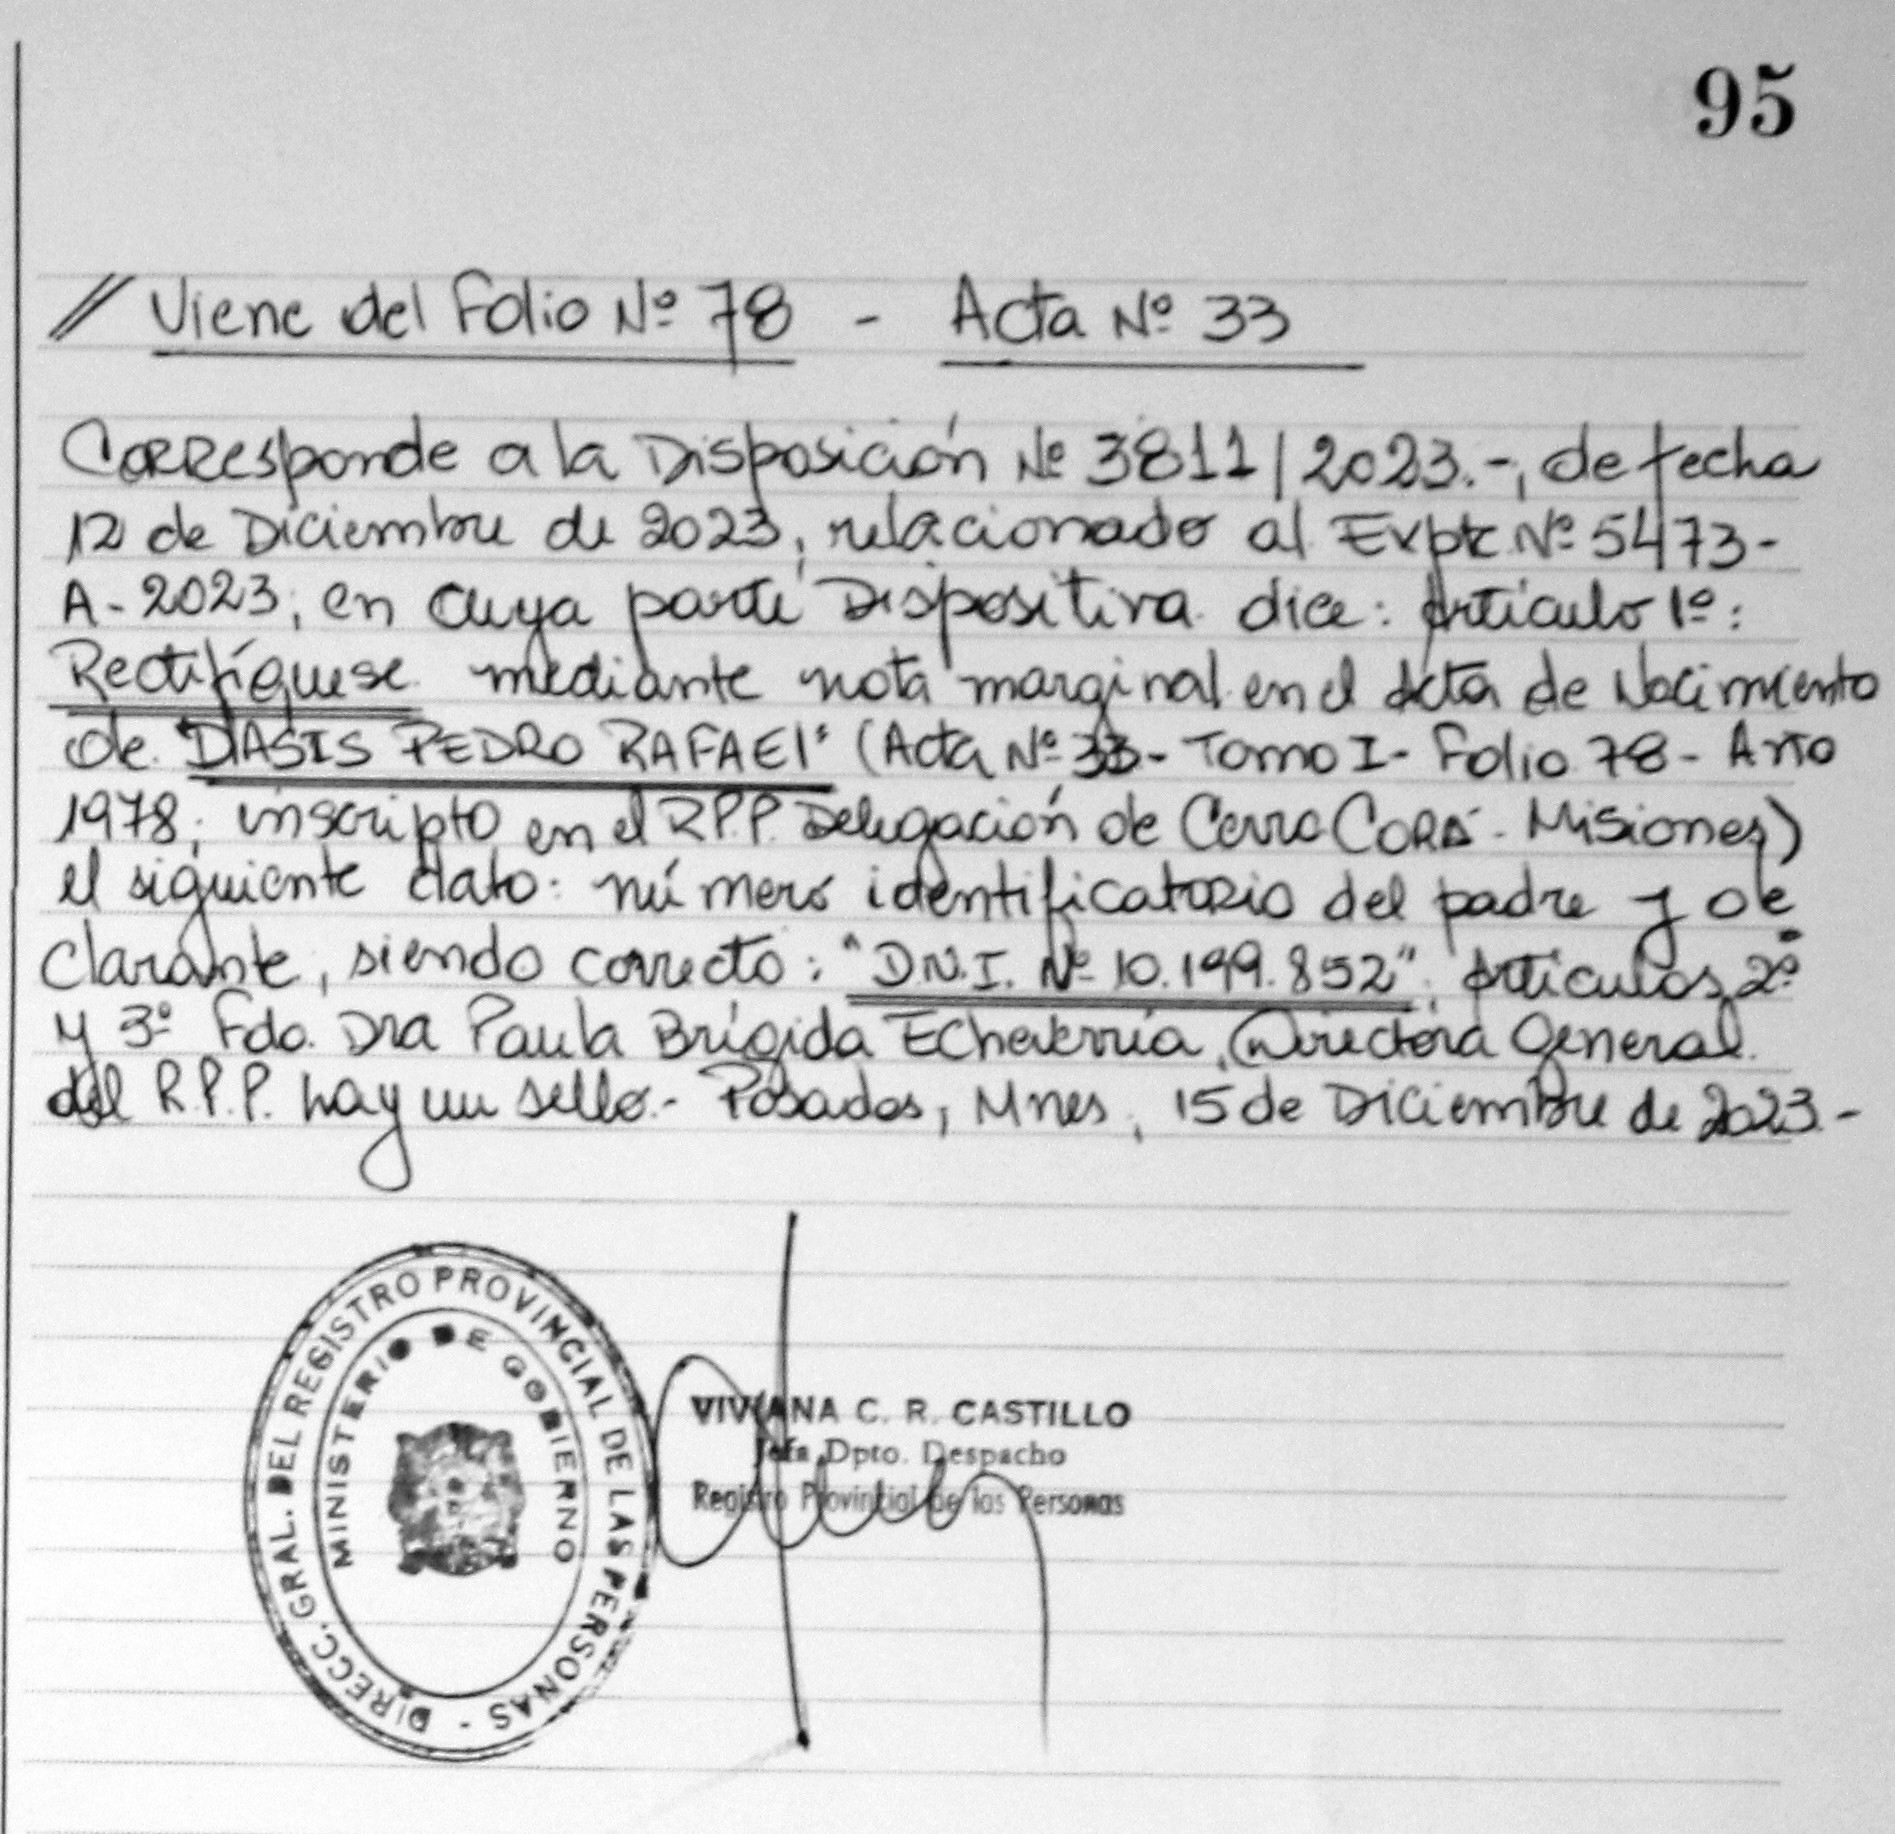 95
// Viene del Folio Nº 78 - Acta Nº 33
Corresponde a la Disposición Nº 3811/2023.-, de fecha
12 de Diciembre de 2023, relacionado al Expte Nº 5473-
A-2023; en cuya parte Dispositiva dice: Artículo 1º:
Rectifíquese mediante nota marginal en el Acta de Nacimiento
de "DASIS PEDRO RAFAEl" (Acta Nº 33- Tomo I- Folio 78- Año
1978; inscripto en el R.P.P. Delegación de Cerro CORÁ - Misiones)
el siguiente dato: número identificatorio del padre y de
clarante, siendo correcto: "D.N.I. Nº 10.199.852". Artículos 2º
y 3º Fdo. Dra Paula Brígida Echeverría, Directora General
del R.P.P. hay un sello.- Posadas, Mnes, 15 de Diciembre de 2023.-
DIRECC. GRAL. DEL REGISTRO PROVINCIAL DE LAS PERSONAS -
MINISTERIO DE GOBIERNO
VIVIANA C. R. CASTILLO
Jefa Dpto. Despacho
Registro Provincial de las Personas